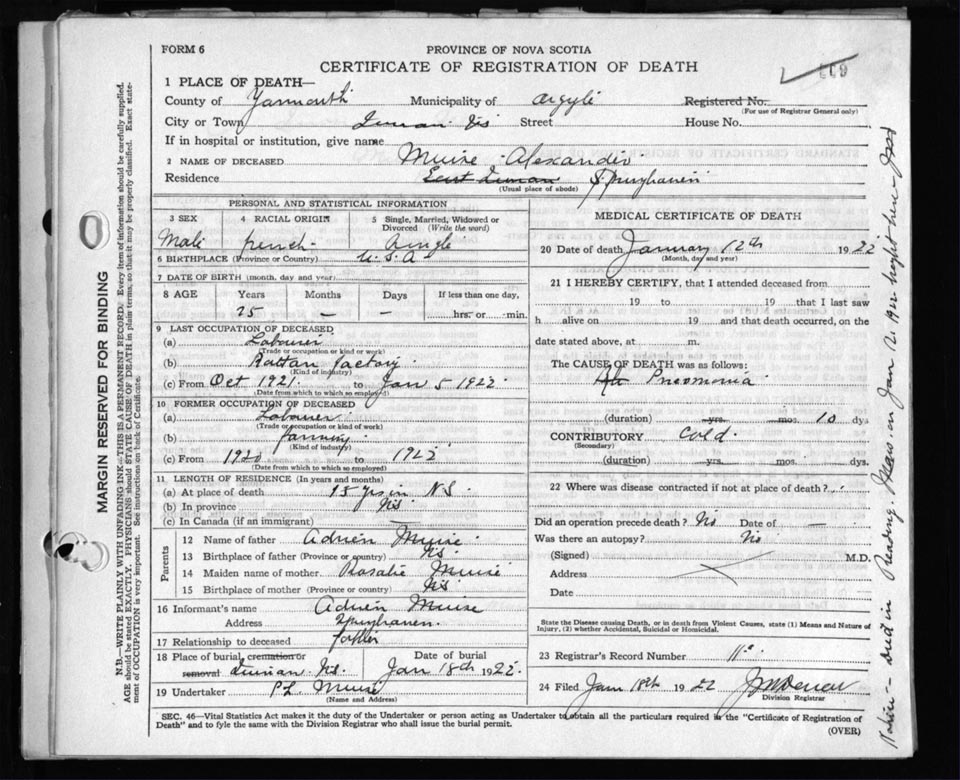 FORM 6
PROVINCE OF NOVA SCOTIA
CERTIFICATE OF REGISTRATION OF DEATH
1 PLACE OF DEATH—
County of Yarmouth Municipality of Argyle Registered No.
(For use of Registrar General only)
City or Town NS Street House No.
If in hospital or institution, give name
2 NAME OF DECEASED Muise Alexander
Residence East
(Usual place of abode)
PERSONAL AND STATISTICAL INFORMATION
3 SEX 4 RACIAL ORIGIN 5 Single, Married, Widowed or Divorced (Write the word)
Male french Single
6 BIRTHPLACE (Province or Country) U.S.A
7 DATE OF BIRTH (month, day and year)
8 AGE Years Months Days If less than one day,
25 — — hrs. or min.
9 LAST OCCUPATION OF DECEASED
(a) Labourer
(Trade or occupation or kind of work)
(b) Rattan factory
(Kind of industry)
(c) From Oct 1921 to Jan 5 1922
(Date from which to which so employed)
10 FORMER OCCUPATION OF DECEASED
(a) Labourer
(Trade or occupation or kind of work)
(b) farming
(Kind of industry)
(c) From 1920 to 1922
(Date from which to which so employed)
11 LENGTH OF RESIDENCE (In years and months)
(a) At place of death 15 yrs in N.S.
(b) In province NS
(c) In Canada (if an immigrant) —
Parents
12 Name of father Adrien Muise
13 Birthplace of father (Province or country) NS
14 Maiden name of mother Rosalie Muise
15 Birthplace of mother (Province or country) NS
16 Informant's name Adrien Muise
Address
17 Relationship to deceased father
18 Place of burial, cremation or removal NS. Date of burial Jan 18th 1922
19 Undertaker P L Muise
(Name and Address)
MEDICAL CERTIFICATE OF DEATH
20 Date of death January 12th 1922
(Month, day and year)
21 I HEREBY CERTIFY, that I attended deceased from
19 to 19 that I last saw
h alive on 19 and that death occurred, on the
date stated above, at m.
The CAUSE OF DEATH was as follows:
Pneomonia
(duration) yrs. mos. 10 dys.
CONTRIBUTORY cold.
(Secondary)
(duration) yrs. mos. dys.
22 Where was disease contracted if not at place of death?
Did an operation precede death? No Date of —
Was there an autopsy? No
(Signed) M.D.
Address
Date
State the Disease causing Death, or in death from Violent Causes, state (1) Means and Nature of
Injury, (2) whether Accidental, Suicidal or Homicidal.
23 Registrar's Record Number
24 Filed Jan 18th 1922
Division Registrar
SEC. 46—Vital Statistics Act makes it the duty of the Undertaker or person acting as Undertaker to obtain all the particulars required in the "Certificate of Registration of
Death" and to fyle the same with the Division Registrar who shall issue the burial permit.
(OVER)
MARGIN RESERVED FOR BINDING
N.B.—WRITE PLAINLY WITH UNFADING INK—THIS IS A PERMANENT RECORD. Every item of information should be carefully supplied.
AGE should be stated EXACTLY. PHYSICIANS should STATE CAUSE OF DEATH in plain terms, so that it may be properly classified. Exact statement of OCCUPATION is very important. See instructions on back of Certificate.
Died in Reading Mass, on Jan 12 1922 brought here for